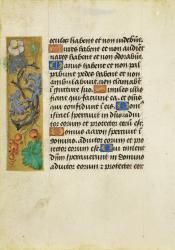 oculos habent et non videbunt.
Aures habent et non audient
nares habent et non odorabunt.
Manus habent et non pal
pabunt pedes habent et non
ambulabunt non clamabunt
in gutture suo. Similes illis
fiant qui faciunt ea et omnes
qui confidunt in eis. Domus
israel speravit in domino adiu
tor eorum et protector eorum est.
Domus aaron speravit in
domino adiutor eorum et pro
tector eorum est. Qui timent
dominum speraverunt in domino
adiutor eorum et protector eorum